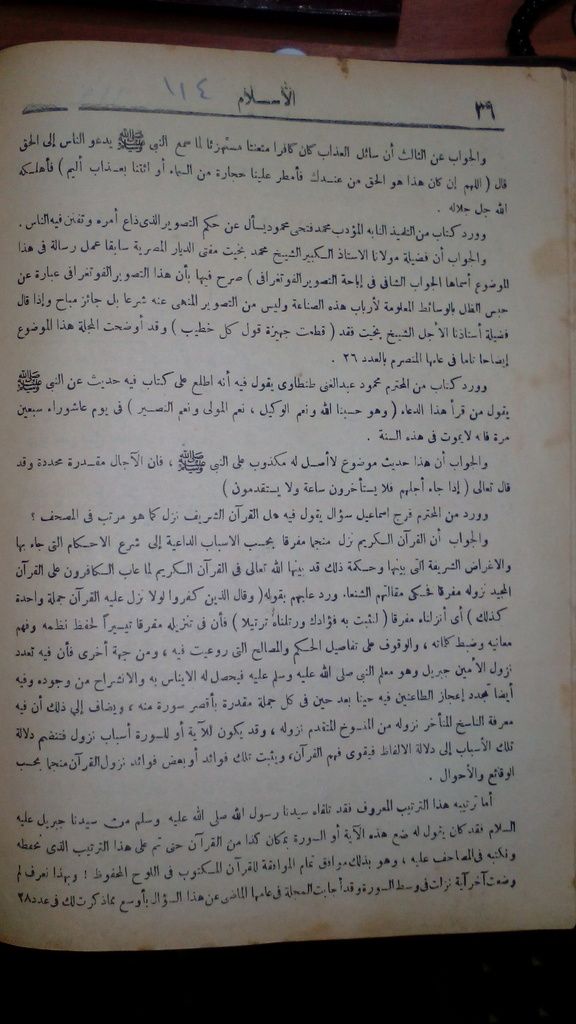 ٣٩ الاســلام ١١٤
والجواب عن الثالث أن سائل العذاب كان كافرا متعنتا مستهزئا لما سمع النبي ﷺ يدعو الناس إلى الحق
قال ( اللهم إن كان هذا هو الحق من عنــدك فأمطر علينا حجارة من السماء أو ائتنا بعــذاب أليم ) فأهلــكه
الله جل جلاله .
وورد كتاب من التلميذ النابه المؤدب محمد فتحى محمود يسأل عن حكم التصوير الذى ذاع أمره وتفنن فيه الناس .
والجواب أن فضيلة مولانا الاستاذ الــكبير الشيخ محمد بخيت مفتى الديار المصرية سابقا عمل رسالة فى هذا
الموضوع أسماها الجواب الشافى فى إباحة التصوير الفوتغرافى ) صرح فيها بأن هذا التصوير الفوتغرافى عبارة عن
حبس الظل بالوسائط المعلومة لأرباب هذه الصناعة وليس من التصوير المنهى عنه شرعا بل جائز مباح وإذا قال
فضيلة أستاذنا الأجل الشيخ بخيت فقد ( قطعت جهيزة قول كل خطيب ) وقد أوضحت المجلة هذا الموضوع
إيضاحا تاما فى عامها المنصرم بالعدد ٢٦ .
وورد كتاب من المحترم محمود عبدالغنى طنطاوى يقول فيه أنه اطلع على كتاب فيه حديث عن النبى ﷺ
يقول من قرأ هذا الدعاء ( وهو حسبنا الله ونعم الوكيل ، نعم المولى ونعم النصــير ) فى يوم عاشوراء سبعين
مرة فانه لايموت فى هذه السنة .
والجواب أن هذا حديث موضوع لاأصــل له مكذوب على النبى ﷺ ، فان الآجال مقــدرة محددة وقد
قال تعالى ( إذا جاء أجلهم فلا يستأخرون ساعة ولا يستقدمون )
وورد من المحترم فرج اسماعيل سؤال يقول فيه هل القرآن الشريف نزل كما هو مرتب فى المصحف ؟
والجواب أن القرآن الــكريم نزل منجما مفرقا بحسب الاسباب الداعية إلى شرع الاحــكام التى جاء بها
والاغراض الشريفة التى بينها وحكمة ذلك قد بينها الله تعالى فى القرآن الــكريم لما عاب الــكافرون على القرآن
المجيد نزوله مفرقا فحــكى مقالتهم الشنعا. ورد عليهم بقوله( وقال الذين كــفروا لولا نزل عليه القرآن جملة واحدة
كذلك ) أى أنزلناه مفرقا ( لنثبت به فؤادك ورتلناه ترتيلا ) فأن فى تنزيله مفرقا تيســيراً لحفظ نظمه وفهم
معانيه وضبط كلماته ، والوقوف على تفاصيل الحــكم والمصالح التى روعيت فيه ، ومن جهة أخرى فأن فيه تعدد
نزول الأمين جبريل وهو معلم النبى صلى الله عليه وسلم عليه فيحصل له الايناس به والانشراح من وجوده وفيه
أيضا تجدد إعجاز الطاعنين فيه حينا بعد حين فى كل جملة مقدرة بأقصر سورة منه ، ويضاف إلى ذلك أن فيه
معرفة الناسخ المتأخر نزوله من المنسوخ المتقدم نزوله ، وقد يكون للآية أو للسورة أسباب نزول فتنضم دلالة
تلك الأسباب إلى دلالة الالفاظ فيقوى فهم القرآن، ويثبت تلك فوائد أو بعض فوائد نزول القرآن منجما بحسب
الوقائع والأحوال .
أما ترتيبه هذا الترتيب المعروف فقد تلقاه سيدنا رسول الله صلى الله عليه وسلم من سيدنا جبريل عليه
السلام فقد كان يقول له ضع هذه الآية أو السورة بمكان كذا من القرآن حتى تم على هذا الترتيب الذى نحفظه
ونكتبه فى المصاحف عليه ، وهو بذلك موافق تمام الموافقة للقرآن المــكتوب فى اللوح المحفوظ ! وبهذا نعرف لم
وضعت آخر آية نزلت فى وسط السورة وقد أجابت المجلة فى عامها الماضى عن هذا السؤال بأوسع مما ذكرت لك فى عدد ٢٨